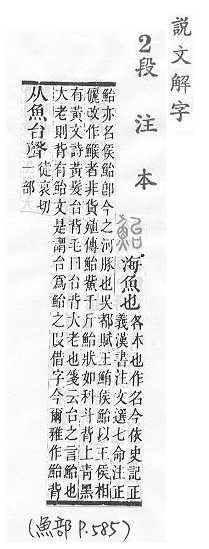 說文解字
2段注本
鮐 海魚也 各本也作名今依史記正
義漢書注文選七命注正
鮐亦名侯鮐卽今之河豚也吳都賦王鮪侯鮐以王侯相
儷改作鯸者非貨殖傳鮐鮆千斤鮐狀如科斗背上靑黑
有黃文詩黃髮台背毛曰台背大老也箋云台之言鮐也
大老則背有鮐文是謂台爲鮐之叚借字今爾雅作鮐背
从魚台聲 徒哀切
一部
(魚部 P.585)